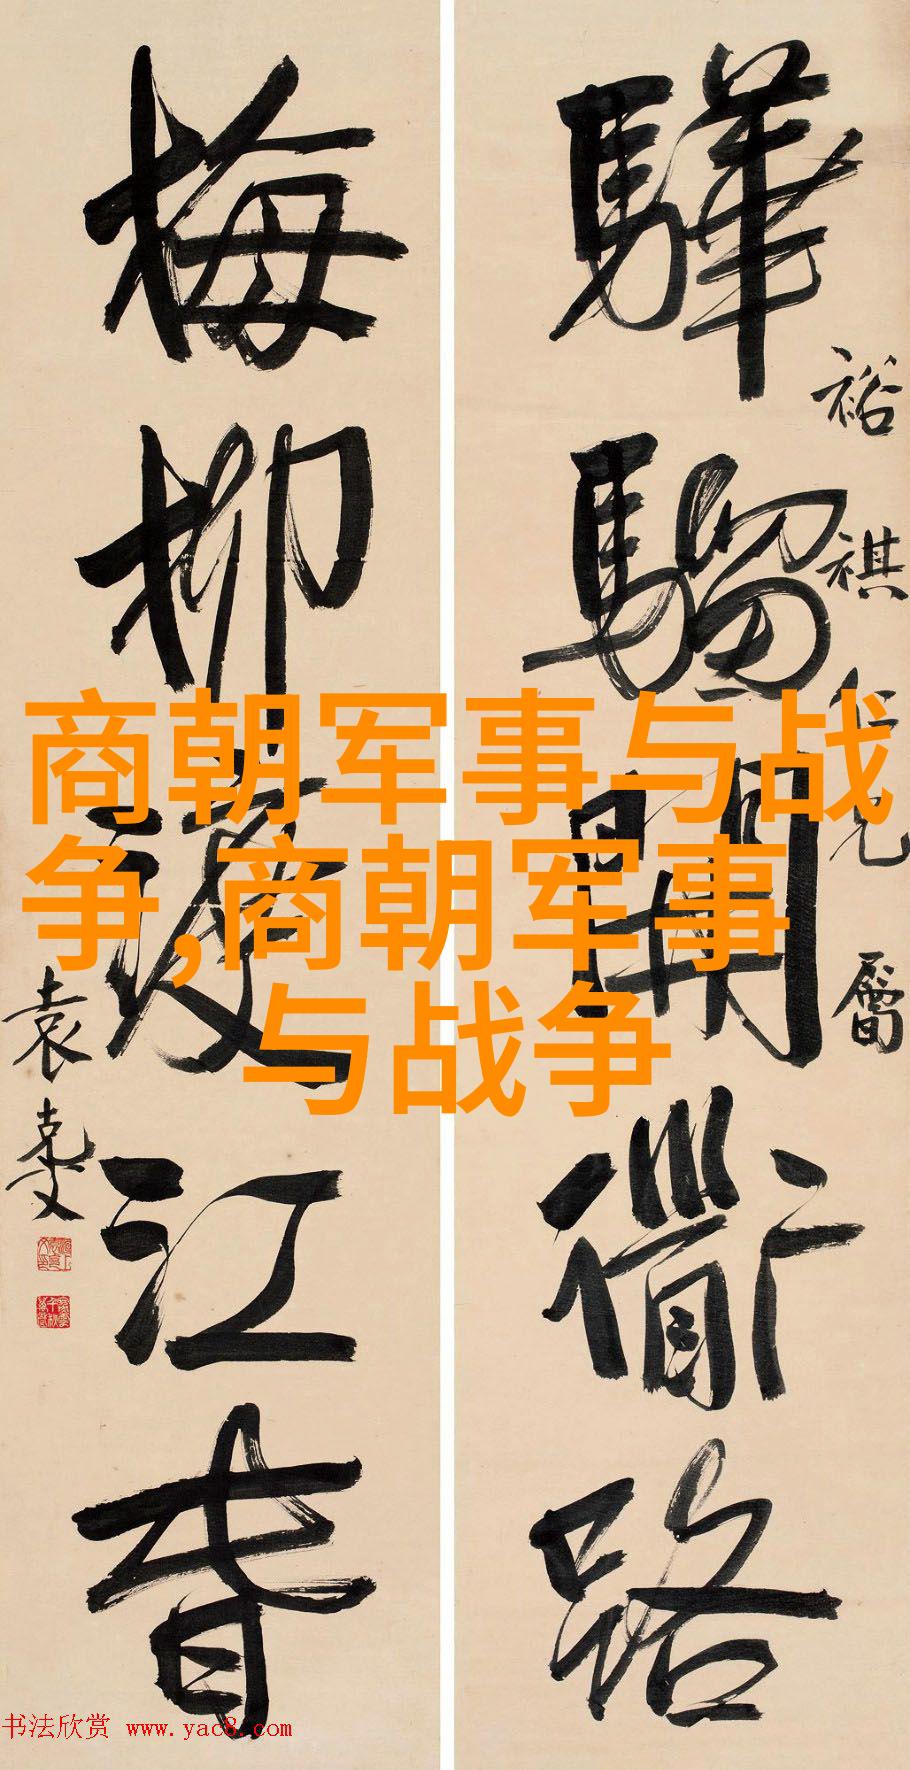 裕祺仁兄屬
驊騮開衜路
梅柳渡江春
袁克文
商朝军事与战
争,商朝军事
与战争
书法欣赏 www.yac8.com